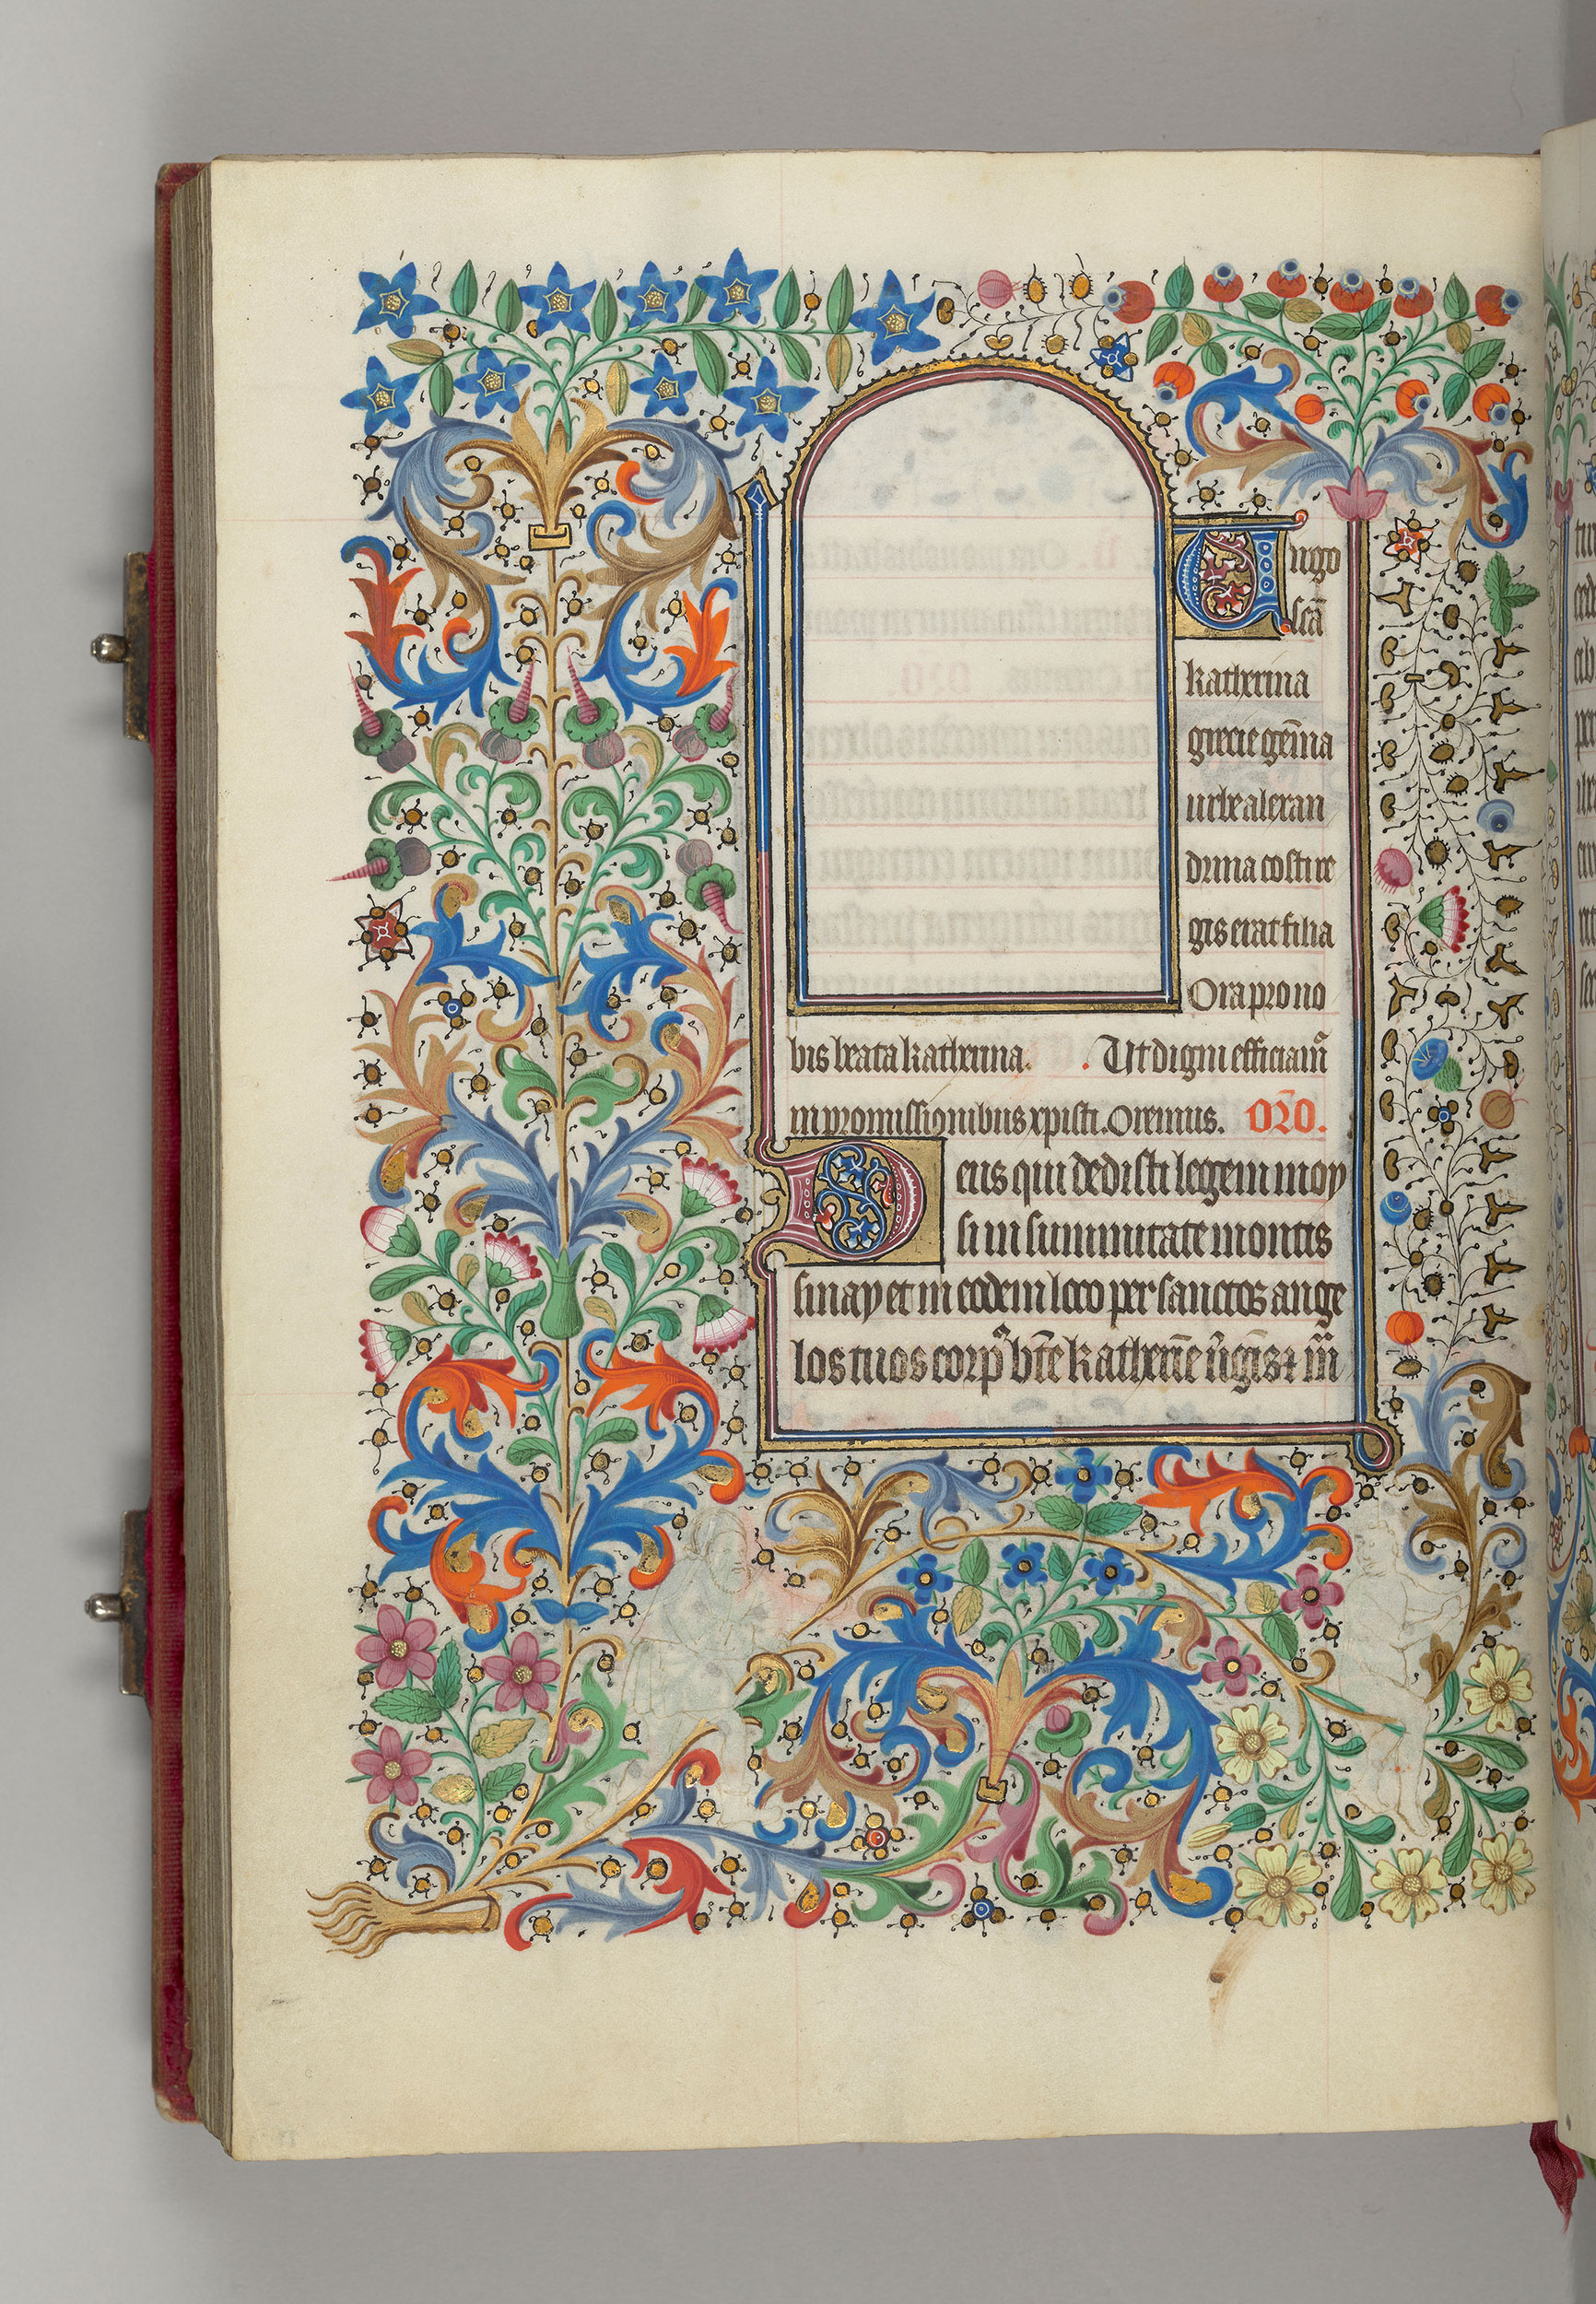 Uirgo
scā
katherina
grecie gēma
urbe alexan
drina costi re
gis erat filia
Ora pro no
bis beata katherina. . Ut digni efficiam̃
in promissionibus xpisti. Oremus. ORO.
Deus qui dedisti legem moy
si in summitate montis
sinay et in eodem loco per sanctos ange
los tuos corp̃ bt̃e katherīe ũgīs ⁊ m̃